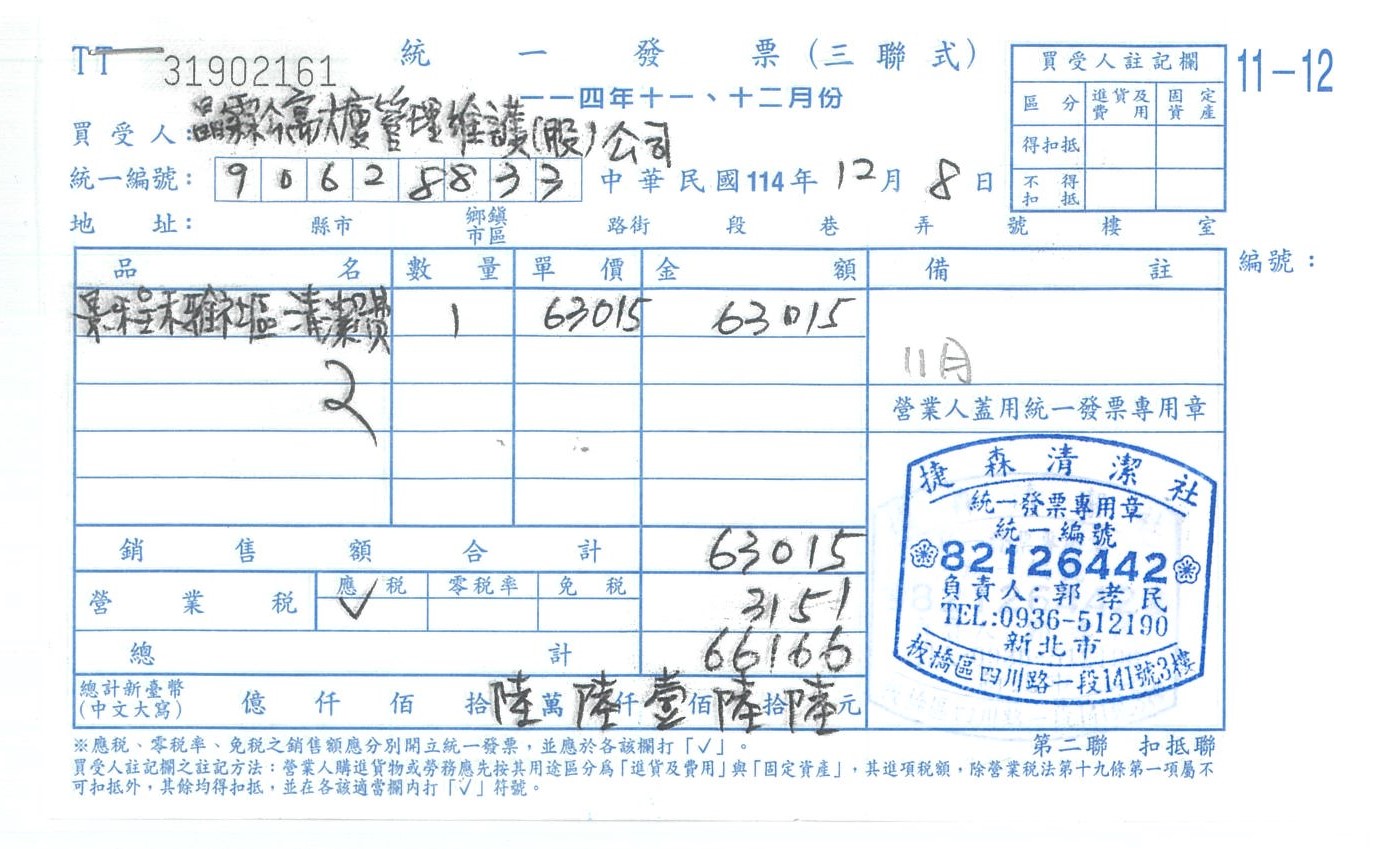 TT 31902161
統一發票(三聯式)
一一四年十一、十二月份
11-12
買受人註記欄
區分 進貨及費用 固定資產
得扣抵
不得扣抵
買受人:公寓大廈管理維護(股)公司
統一編號: 90628833 中華民國114年12月8日
地址: 縣市 鄉鎮市區 路街 段 巷 弄 號 樓 室
品名 數量 單價 金額 備註 編號:
禾雅社區清潔費 1 63015 63015
11月
2
營業人蓋用統一發票專用章
捷森清潔社
統一發票專用章
統一編號
82126442
負責人:郭孝民
TEL:0936-512190
新北市
板橋區四川路一段141號3樓
銷售額合計 63015
營業稅 應稅 ✓ 零稅率 免稅 3151
總計 66166
總計新臺幣(中文大寫) 億 仟 佰 拾陸萬陸仟壹佰陸拾陸元
※應稅、零稅率、免稅之銷售額應分別開立統一發票,並應於各該欄打「✓」。
第二聯 扣抵聯
買受人註記欄之註記方法:營業人購進貨物或勞務應先按其用途區分為「進貨及費用」與「固定資產」,其進項稅額,除營業稅法第十九條第一項屬不
可扣抵外,其餘均得扣抵,並在各該適當欄內打「✓」符號。